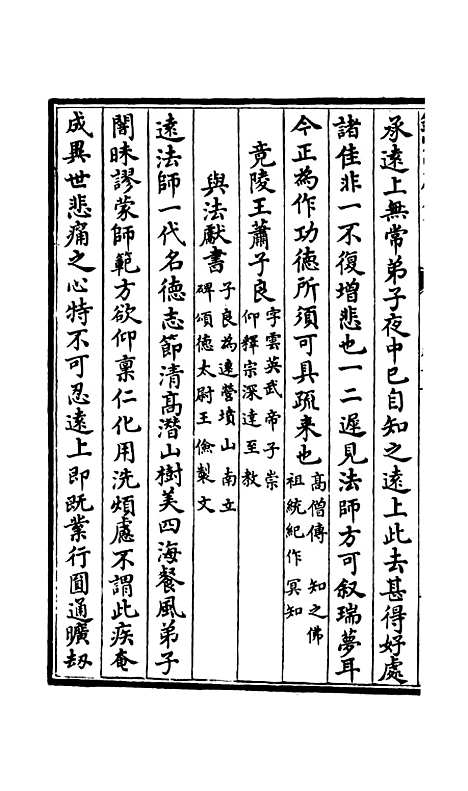 承遠上無常弟子夜中已自知之遠上此去甚得好處
諸佳非一不復增悲也一二遲見法師方可叙瑞夢耳
今正為作功徳所須可具疏来也
高僧傳　知之佛
祖統紀作　冥知
竟陵王蕭子良
字雲英武帝子崇
仰釋宗深達至教
與法獻書
子良為遠營墳山南立
碑頌徳太尉王儉製文
遠法師一代名徳志節清髙潛山樹美四海餐風弟子
闇昧謬蒙師範方欲仰禀仁化用洗煩慮不謂此疾奄
成異世悲痛之心特不可忍遠上即既業行圓通曠刼